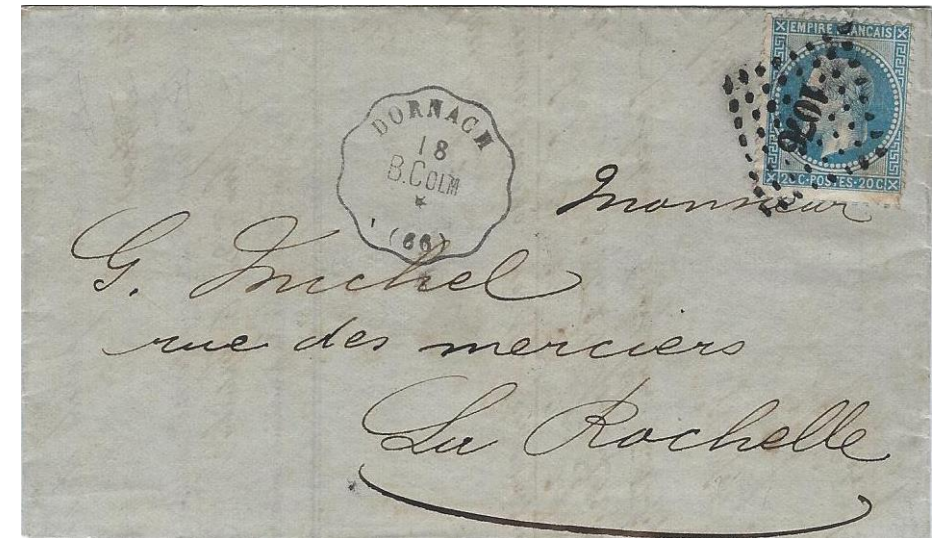 EMPIRE FRANCAIS
1076
20C·POSTES·20C
DORNACH
18
B.COLM
*
(66)
Monsieur
G. Michel
rue des merciers
La Rochelle